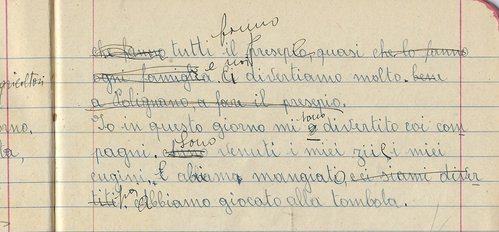 fanno
che fanno tutti il presepio, quasi che lo fanno
gricoltori
ogni famiglia e noi ci divertiamo molto. bene
a Polignano a fare il presepio.
rno.
Io in questo giorno mi sono divertito coi com
ta,
pagni. Sono venuti i miei zii e i miei
cugini. E abiamo mangiato, e ci siami diver
titi, Abbiamo giocato alla tombola.